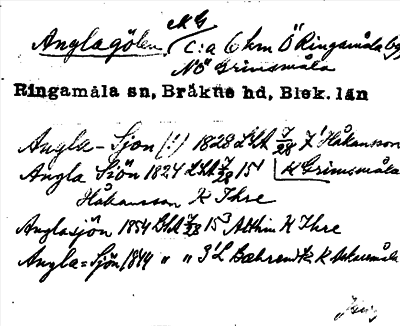 MG
Anglagölen, c:a 6 km Ö Ringamåla by
NÖ Grimsmåla
Ringamåla sn, Bräkne hd, Blek. län
Angla-Sjön (!) 1828 LSA 7/28 Z1 Håkansson
Angla Siön 1824 LSA 7/28 151 K Grimsmåla
Håkansson K Ihre
Anglasjön 1854 LSA 7/28 153 Althin K Ihre
Angla=Sjön 1844 " " 31 L Bæhrendtz K